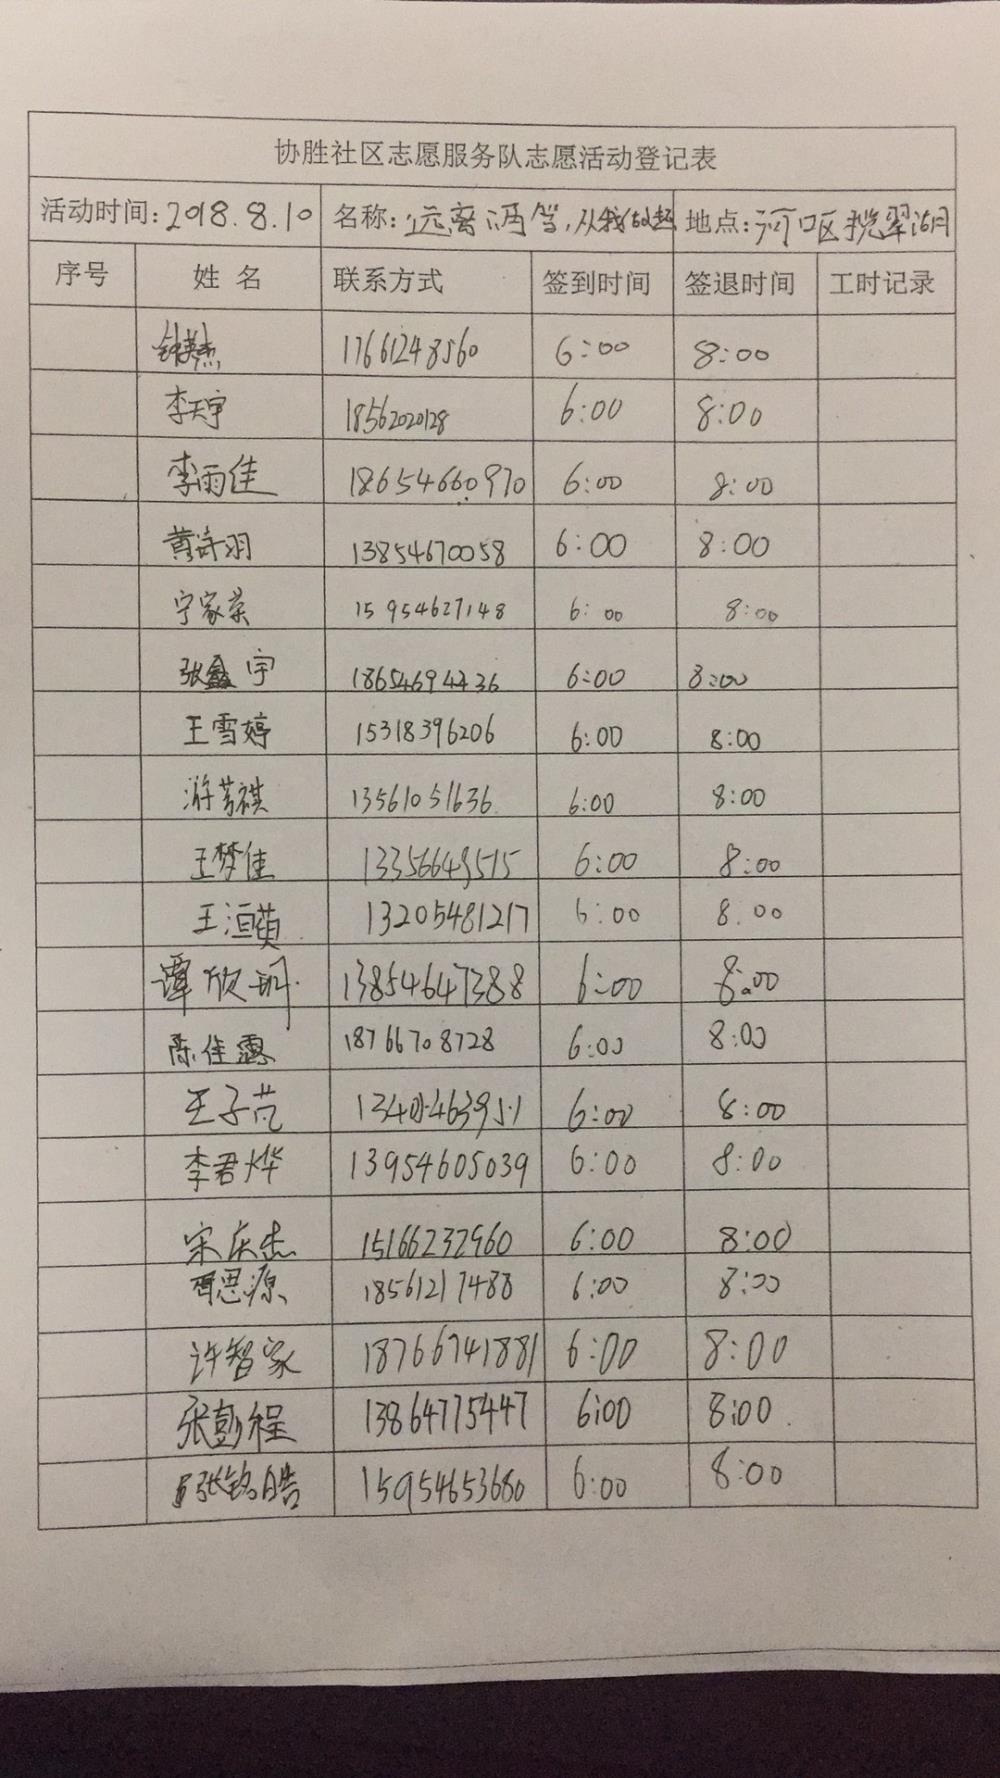 协胜社区志愿服务队志愿活动登记表
活动时间:2018.8.10 名称:远离酒驾,从我做起 地点:河口区揽翠湖
序号 姓名 联系方式 签到时间 签退时间 工时记录
钟英杰 17661248560 6:00 8:00
李天宇 1856202028 6:00 8:00
李雨佳 18654660970 6:00 8:00
黄诗羽 13854670058 6:00 8:00
宁家荣 15954627148 6:00 8:00
张鑫宇 18654694436 6:00 8:00
王雪婷 15318396206 6:00 8:00
游芳祺 13561051636 6:00 8:00
王梦佳 13356649515 6:00 8:00
王洹萸 13205481217 6:00 8:00
谭欣玥 13854647388 6:00 8:00
陈佳露 18766708728 6:00 8:00
王子芃 6:00 8:00
李君烨 13954605039 6:00 8:00
宋庆杰 15166232960 6:00 8:00
思源 18561217488 6:00 8:00
许智家 18766741881 6:00 8:00
张彭程 13864775447 6:00 8:00
张铭皓 15954653680 6:00 8:00